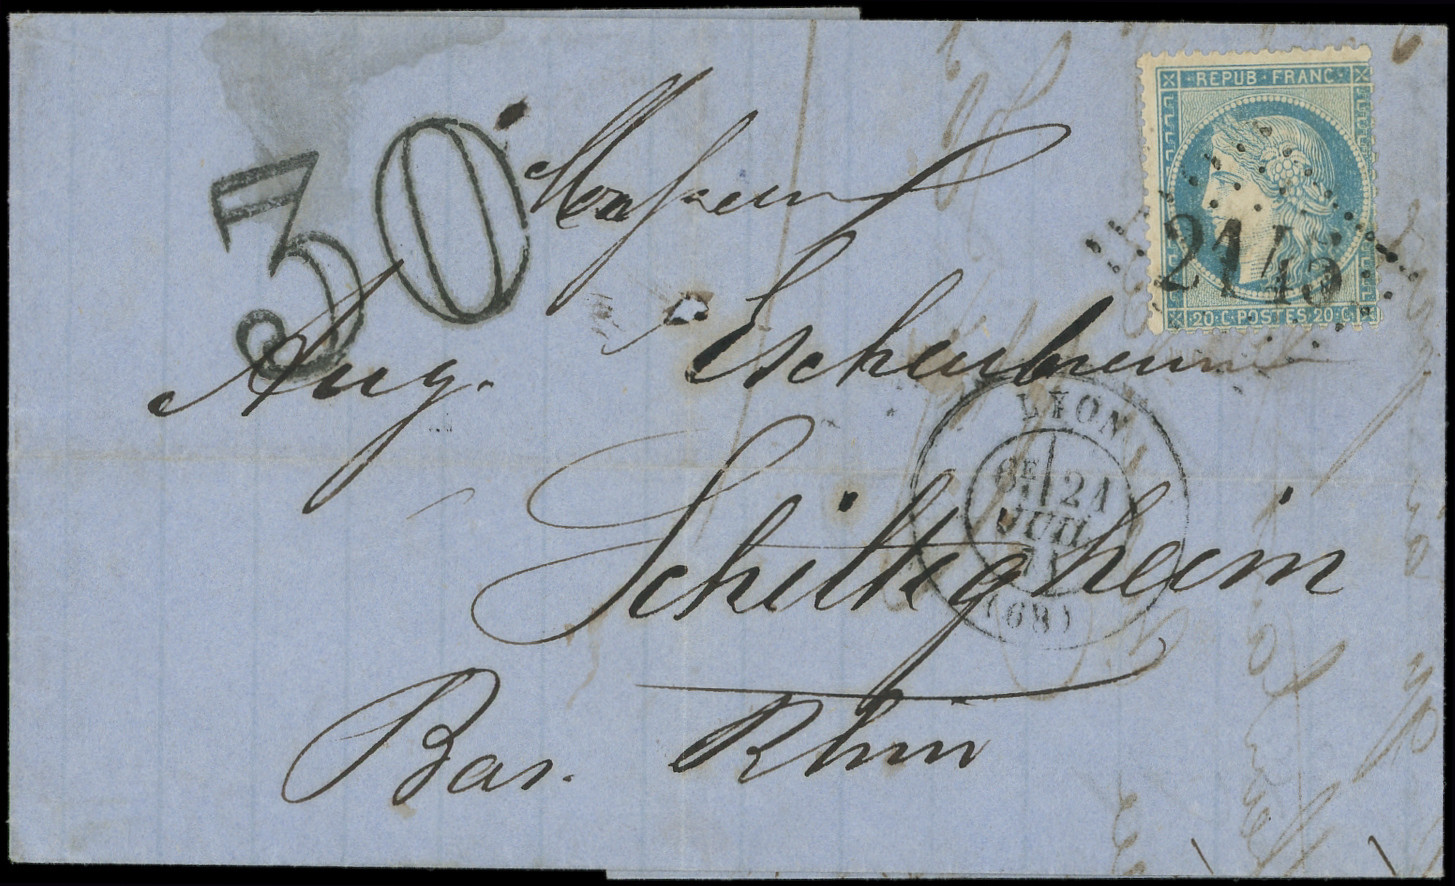 30
REPUB · FRANC
2145
20·C·POSTES·20·C
Monsieur
Aug. Escherbrenn
LYON
6E 21
JUIL
71
(68)
Schiltigheim
Bas. Rhin